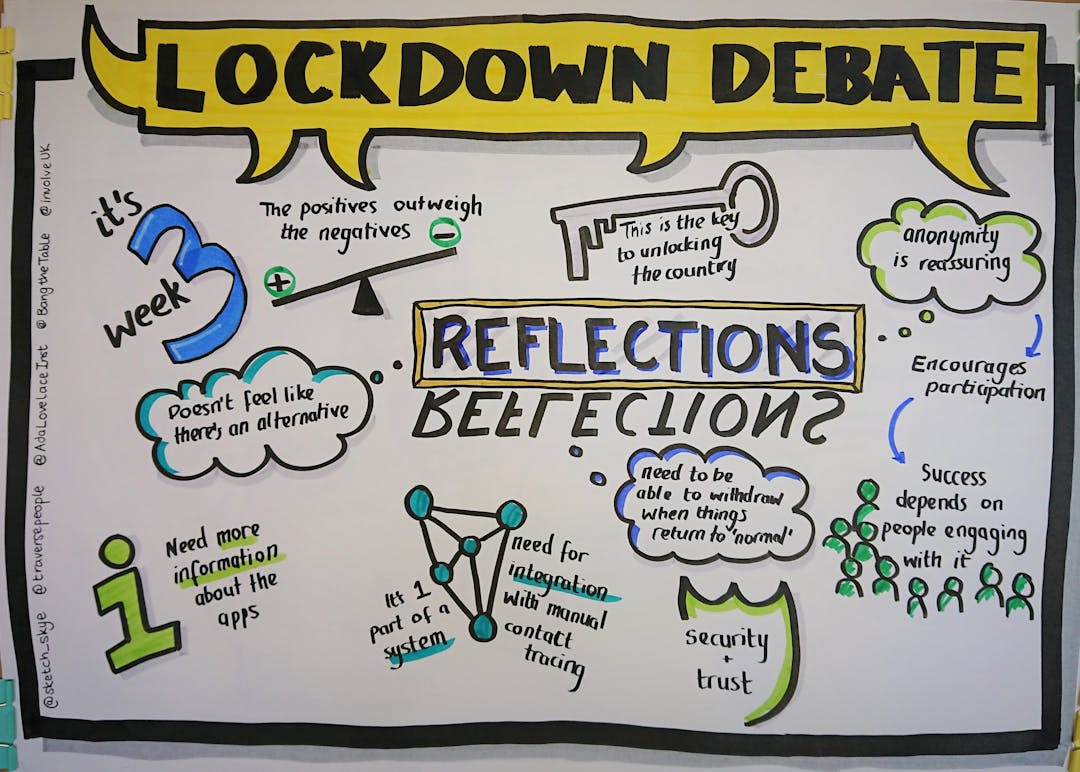 LOCKDOWN DEBATE
it's
week
3
The positives outweigh
the negatives
+
-
This is the key
to unlocking
the country
anonymity
is reassuring
Encourages
participation
Success
depends on
people engaging
with it
REFLECTIONS
REFLECTIONS
Doesn't feel like
there's an alternative
need to be
able to withdraw
when things
return to 'normal'
i
Need more
information
about the
apps
It's 1
part of a
system
need for
integration
with manual
contact
tracing
security
+
trust
@sketch_skye @traversepeople @AdaLovelaceInst @BangtheTable @involveUK